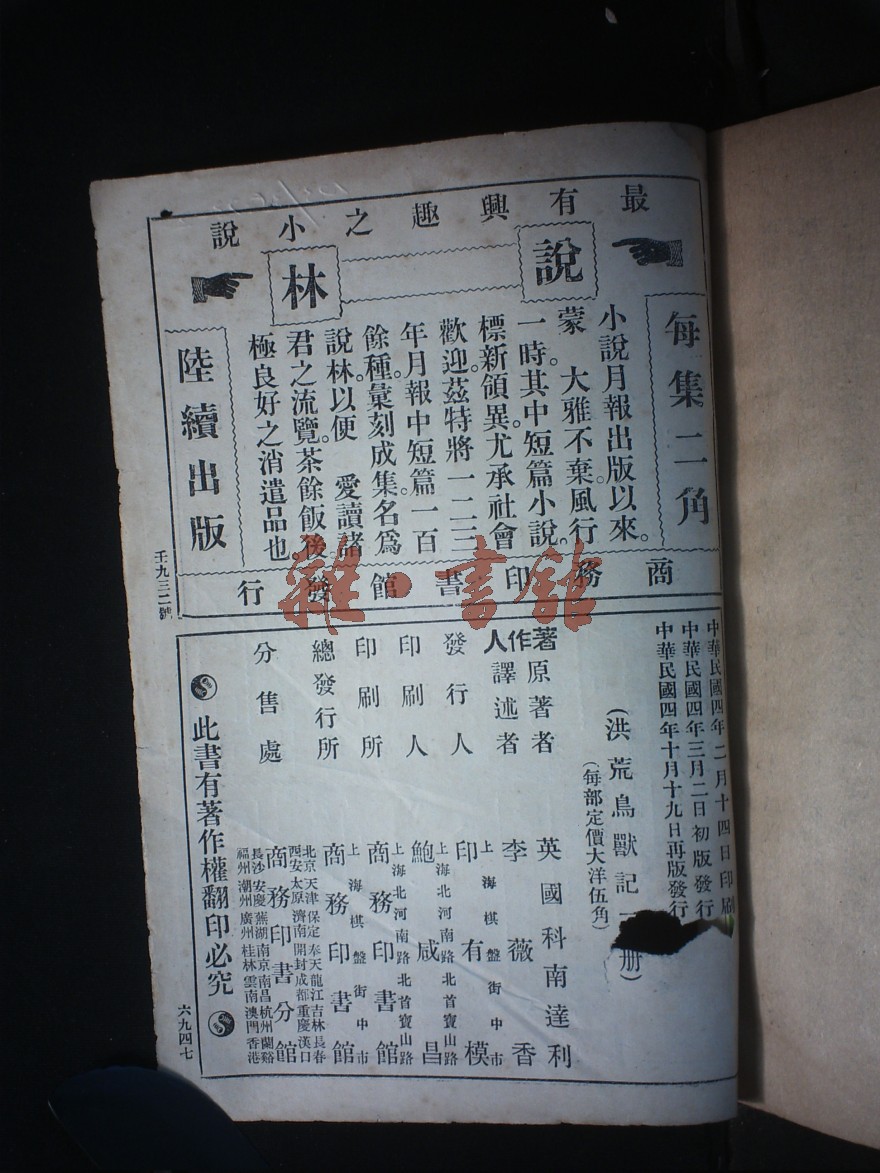 最有興趣之小說
說林
每集二角
小說月報出版以來。
蒙　大雅不棄。風行
一時其中短篇小說。
標新領異。尤承社會
歡迎。茲特將一二三
年月報中短篇一百
餘種。彙刻成集。名爲
說林。以便　愛讀諸
君之流覽。茶餘飯後。
極良好之消遣品也。
陸續出版
商務印書館發行
壬九三二號
中華民國四年二月十四日印刷
中華民國四年三月二日初版發行
中華民國四年十月十九日再版發行
(洪荒鳥獸記一册)
(每部定價大洋伍角)
著作人
原著者　英國科南達利
譯述者　李薇香
發行人　印有模
上海棋盤街中市
印刷人　鮑咸昌
上海北河南路北首寶山路
印刷所　商務印書館
上海北河南路北首寶山路
總發行所　商務印書館
上海棋盤街中市
分售處　商務印書分館
北京天津保定奉天龍江吉林長春
西安太原濟南開封成都重慶漢口
長沙安慶蕪湖南京南昌杭州蘭谿
福州潮州廣州桂林雲南澳門香港
此書有著作權翻印必究
六九四七
雜·書館